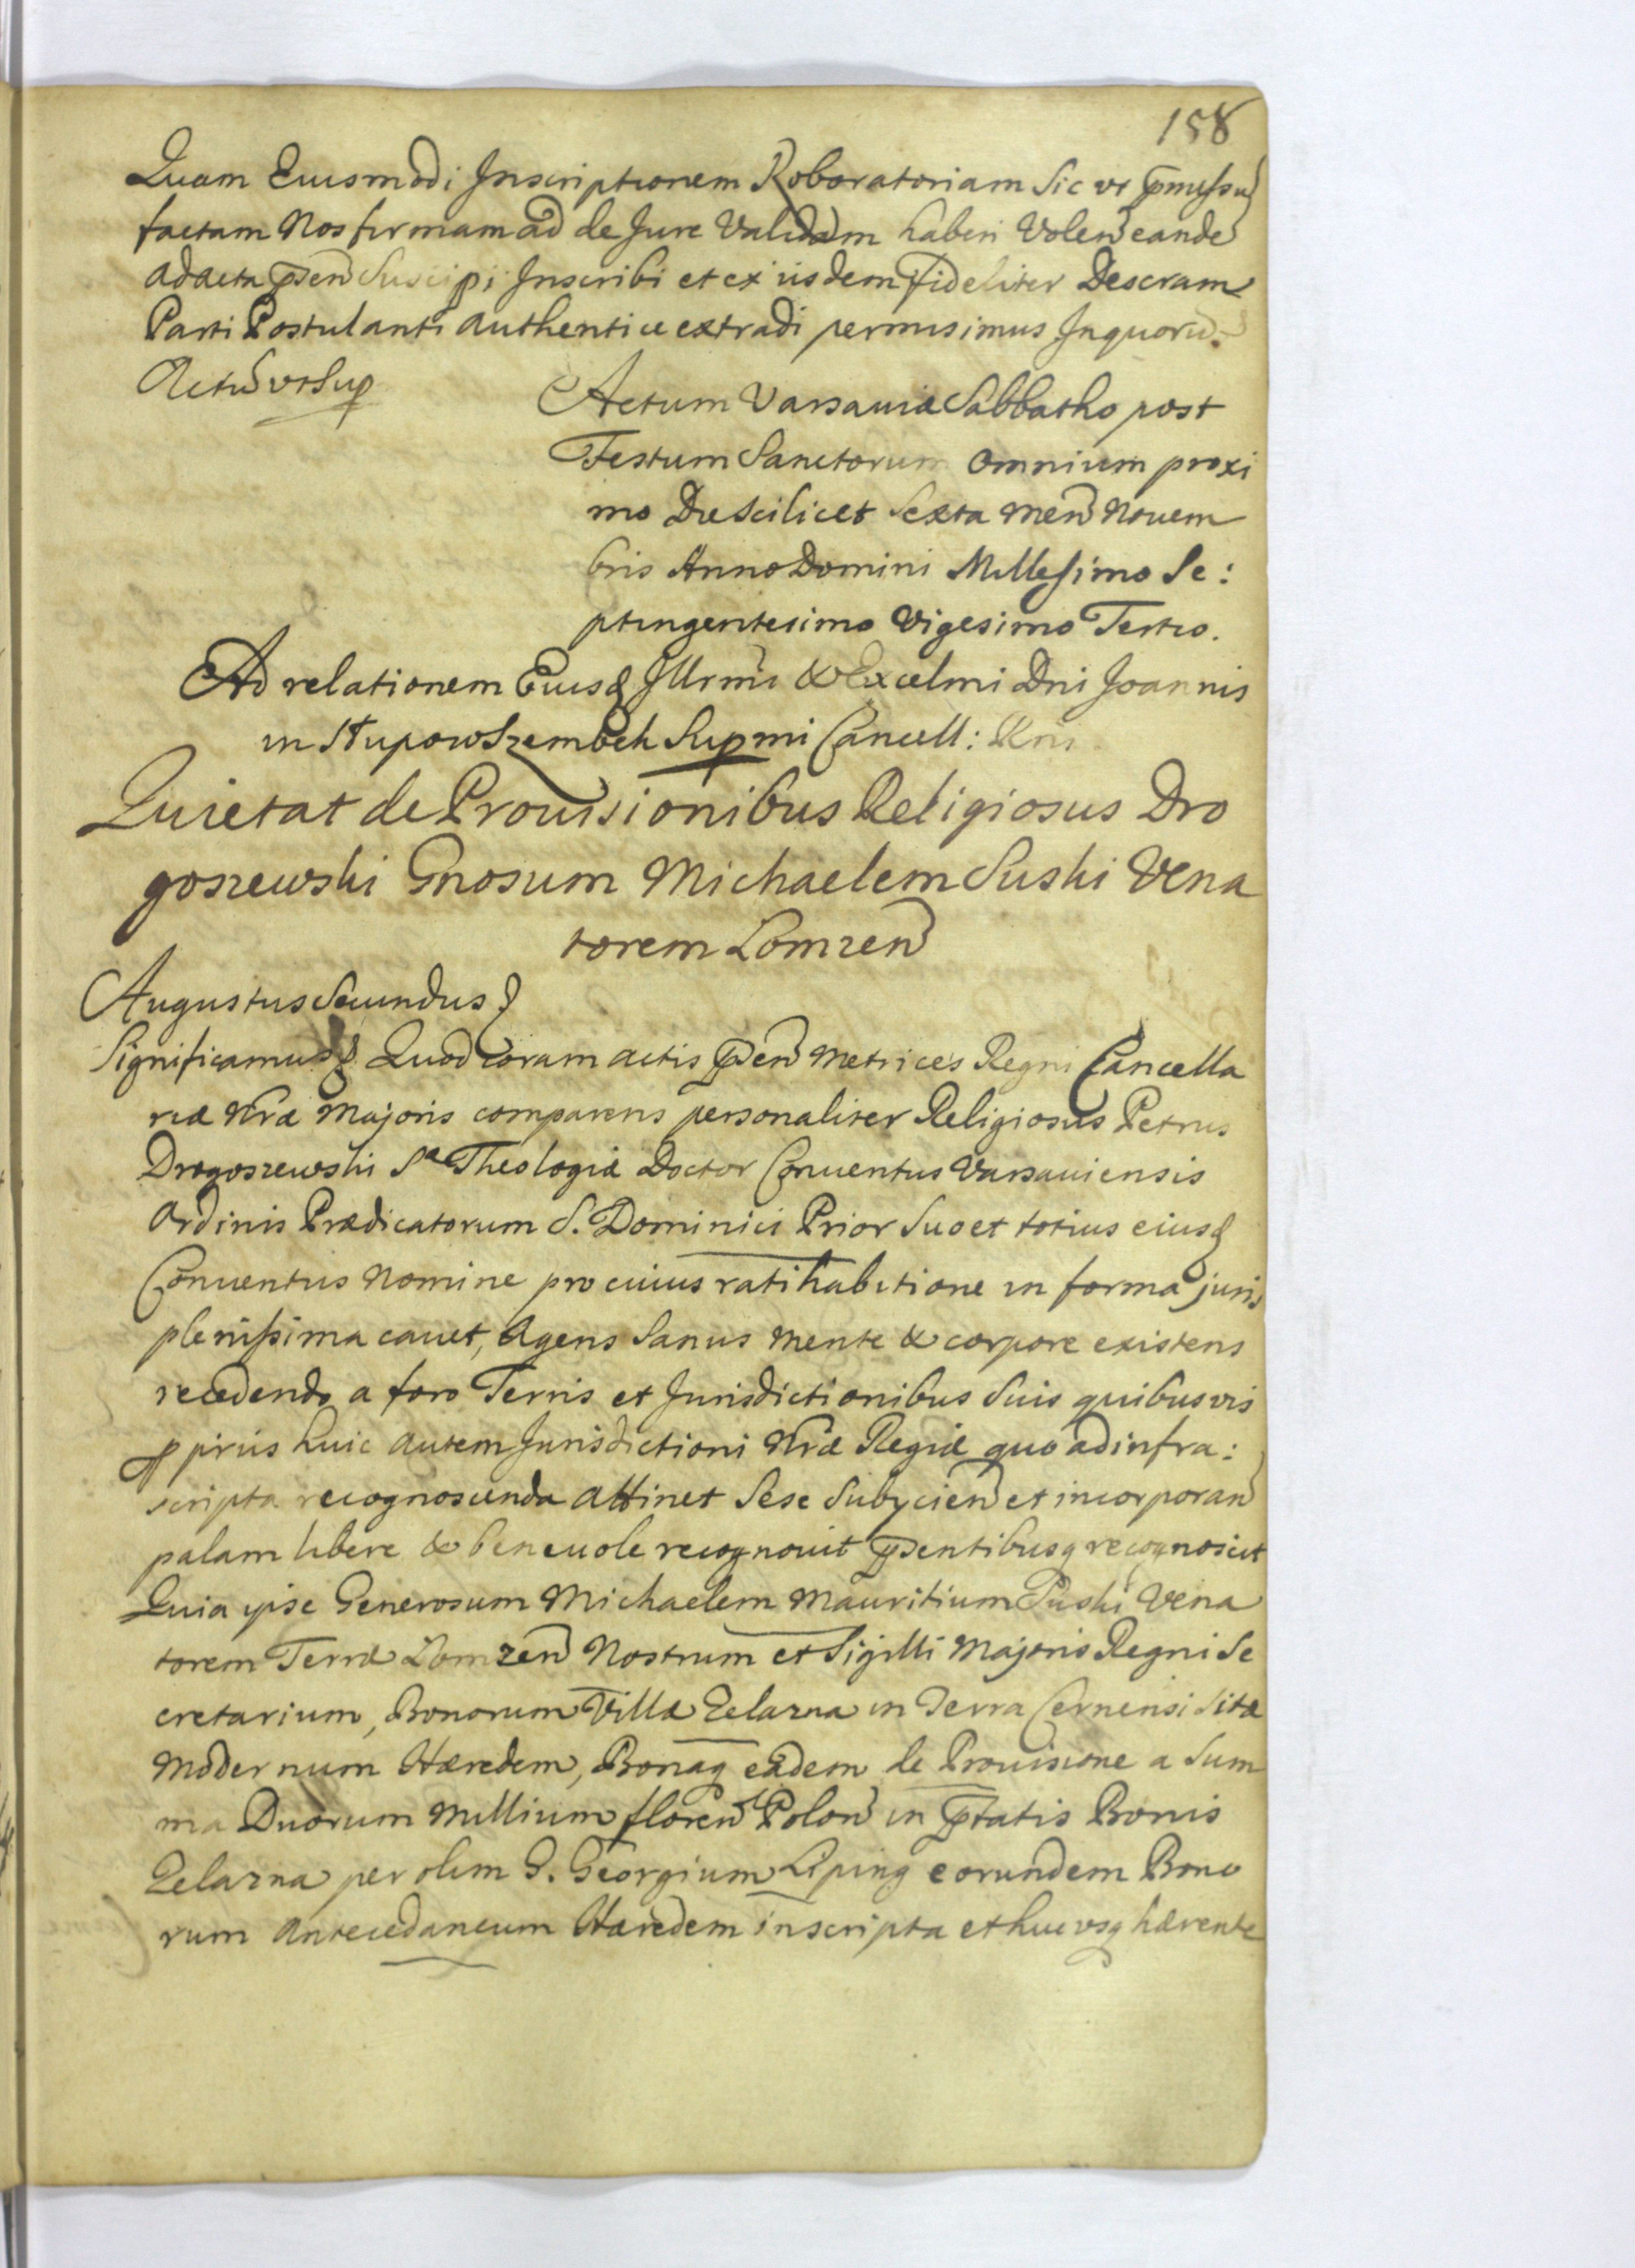 158
Quam Eiusmodi Inscriptionem Roboratoriam Sic vt pmissu
factam Nos firmam ad de Jure Validam haberi Volen eande
ad acta psen Suscipi Inscribi et ex iisdem fideliter Descram
Parti Postulanti authentice extradi permisimus Inquoru.
Actu vt Sup
Actum Varsaviæ Sabbatho post
Festum Sanctorum omnium proxi
mo Die Scilicet Sexta Men Novem
bris Anno Domini Millesimo Se:
ptingentesimo Vigesimo Tertio.
Ad relationem Eiusq Illrmi & Excelmi Dni Joannis
in Słupow Szembek Supmi Cancell: Rni
Quietat de Prouisionibus Religiosus Dro
goszewski Gnosum Michaelem Suski Vena
torem Lomzen
Augustus Secundus
Significamus Quod coram actis psen Metrices Regni Cancella
riæ Nræ Majoris comparens personaliter Religiosus Petrus
Drogoszewski Sæ Theologiæ Doctor Conuentus Varsauiensis
Ordinis Prædicatorum S. Dominici Prior Suo et totius eiusq
Conuentus Nomine pro cuius ratihabitione in forma juris
plenissima cauet, Agens Sanus Mente & corpore existens
recedendo a foro Terris et Jurisdictionibus Suis quibusvis
ppriis huic autem Jurisdictioni Nræ Regiæ quo ad infra:
scripta recognoscenda attinet Sese Subijcien et incorporan
palam libere & beneuole recognouit psentibusq recognoscit
Quia ipse Generosum Michaelem Mauritium Suski Vena
torem Terræ Lomzen Nostrum et Sigilli Majoris Regni Se
cretarium, Bonorum Villæ Zelazna in Terra Cernensi Sitæ
Modernum Hæredem, Bonaq eadem de Prouisione a Sum
ma Duorum Millium floren Polon in ptatis Bonis
Zelazna per olim G. Georgium Liping eorundem Bono
rum Antecedaneum Hæredem inscripta et huc vsq hærente